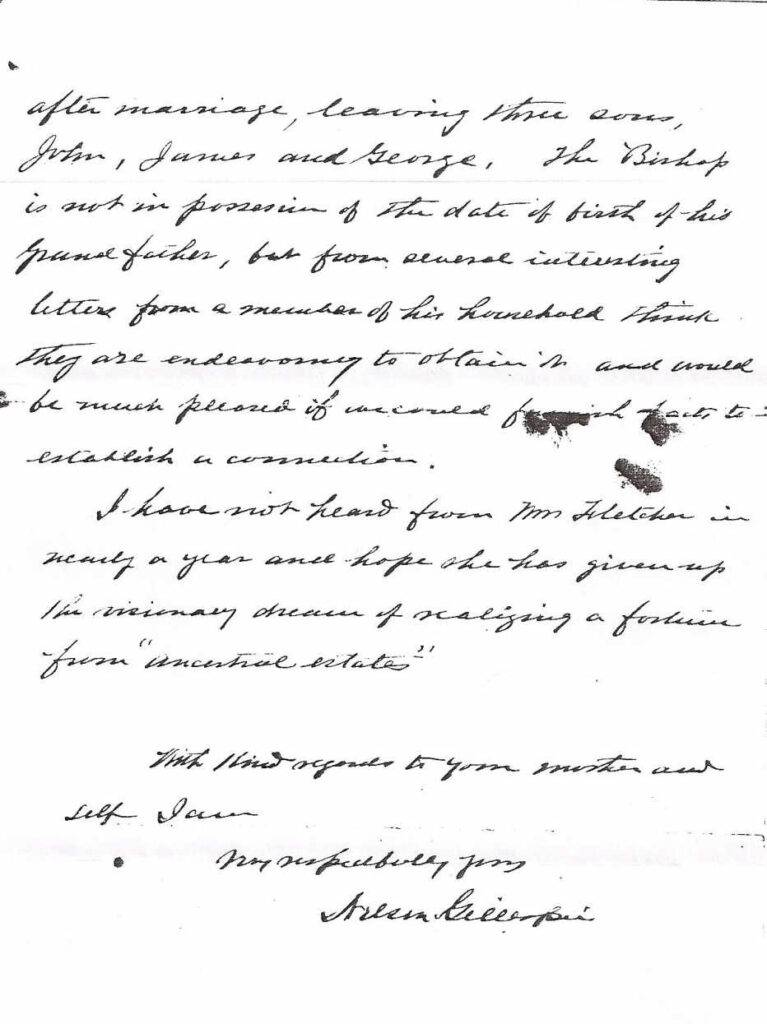 after marriage, leaving three sons,
John, James and George. The Bishop
is not in possession of the date of birth of his
Grand father, but from several interesting
letters from a member of his household think
they are endeavoring to obtain it and would
be much pleased if we could furnish facts to
establish a connection.
I have not heard from Mrs Fletcher in
nearly a year and hope she has given up
the visionary dream of realizing a fortune
from "ancestral estates"
With Kind regards to your mother and
self I am
Very respectfully yours
Nelson Gillespie